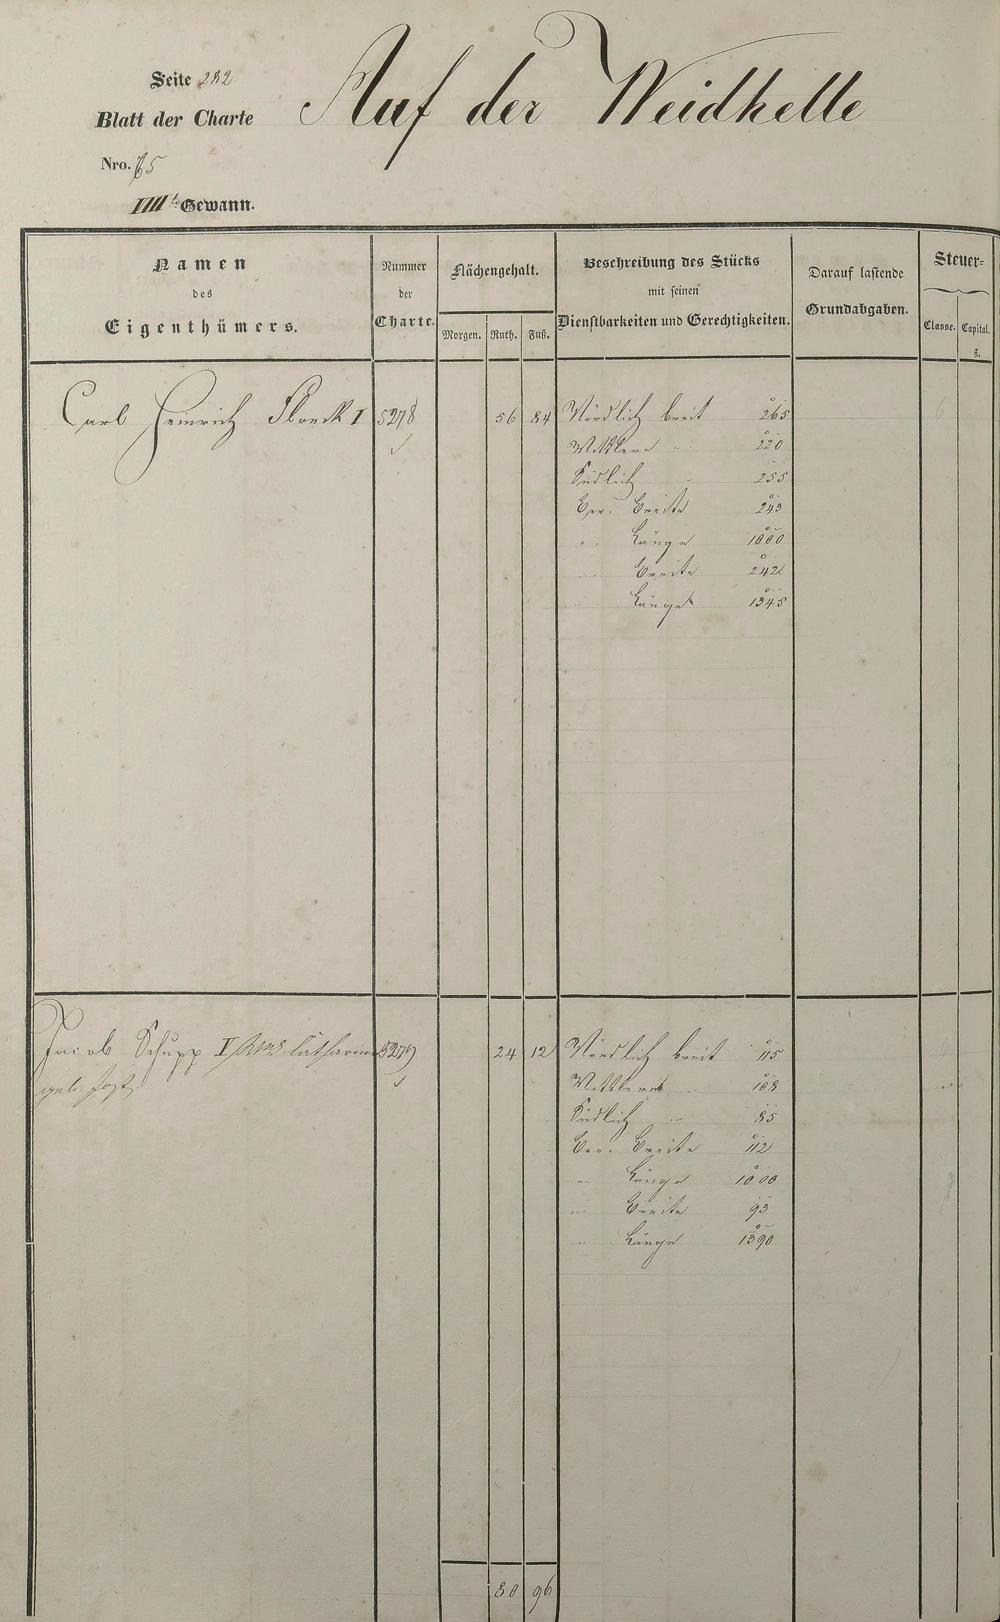 Seite 282
Auf der Weidhelle
Blatt der Charte
Nro. 65
IIIIte Gewann.
Namen
des
Eigenthümers.
Nummer
der
Charte.
Flächengehalt.
Morgen. Ruth. Fuß.
Beschreibung des Stücks
mit seinen
Dienstbarkeiten und Gerechtigkeiten.
Darauf lastende
Grundabgaben.
Steuer=
Classe. Capital.
fl.
Carl Heinrich I 5278 56 84 Nördlich breit 265
Mittlere " 220
Südlich " 255
Ber. Breite 243
" Länge 1080
" Breite 242
" Länge 1345
Jacob Schupp I 5279 24 12 Nördlich breit 115
Mittlere " 108
Südlich " 85
Ber. Breite 112
" Länge 1000
" Breite 93
" Länge 1390
geb. Jost
80 96